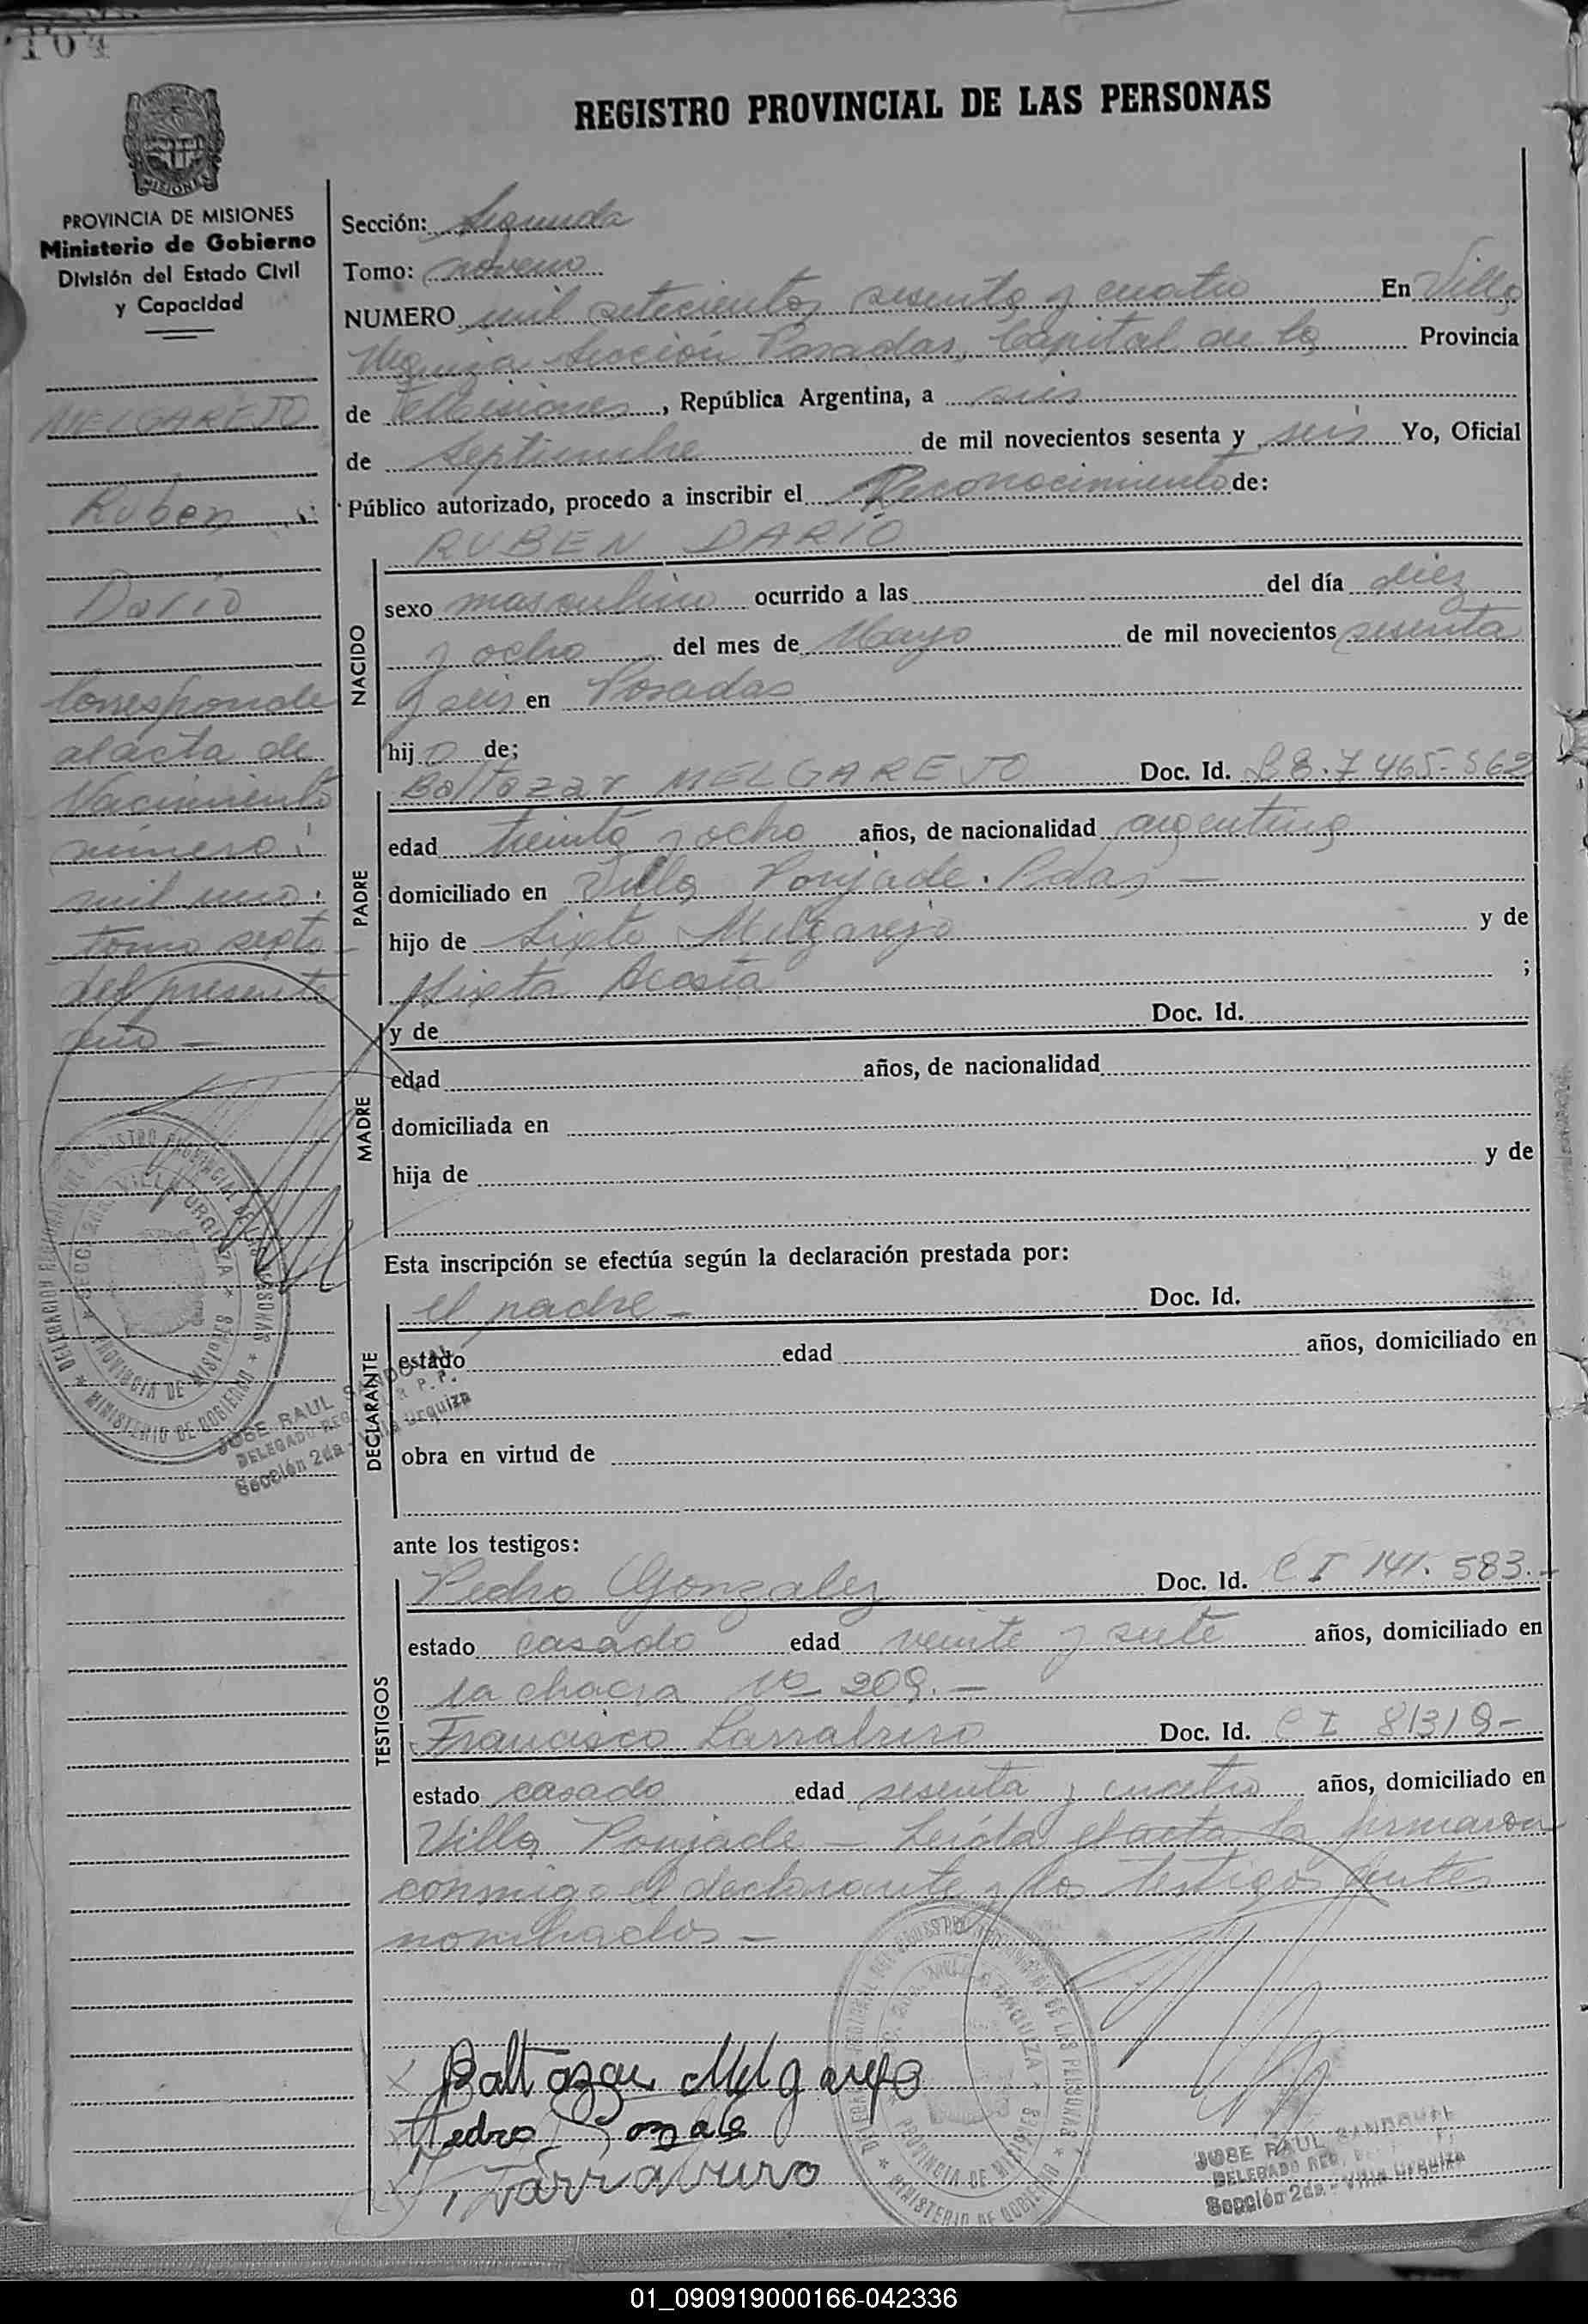 REGISTRO PROVINCIAL DE LAS PERSONAS
PROVINCIA DE MISIONES
Ministerio de Gobierno
División del Estado Civil
y Capacidad
MELGAREJO
Ruben
Dario
Corresponde
al acta de
Nacimiento
número:
mil uno.
tomo septo
del presente
año -
JOSE RAUL SANDOVAL
DELEGADO REG. R. P. P.
Sección 2da - Villa Urquiza
Sección: Segunda
Tomo: noveno
NUMERO mil setecientos sesenta y cuatro En Villa
Urquiza Sección Posadas, Capital de la Provincia
de Misiones, República Argentina, a seis
de Septiembre de mil novecientos sesenta y seis Yo, Oficial
Público autorizado, procedo a inscribir el Reconocimiento de:
RUBEN DARIO
NACIDO
sexo masculino ocurrido a las del día diez
y ocho del mes de Mayo de mil novecientos sesenta
y seis en Posadas
hijo de;
PADRE
Baltazar MELGAREJO Doc. Id. 7.465.562
edad treinta y ocho años, de nacionalidad argentina
domiciliado en Villa Poujade. Pdas -
hijo de Sixto Melgarejo y de
Sixta Acosta ;
MADRE
y de Doc. Id.
edad años, de nacionalidad
domiciliada en
hija de y de
Esta inscripción se efectúa según la declaración prestada por:
DECLARANTE
el padre - Doc. Id.
estado edad años, domiciliado en
obra en virtud de
ante los testigos:
TESTIGOS
Pedro Gonzalez Doc. Id. C I 141.583.-
estado casado edad veinte y siete años, domiciliado en
la chacra Nº 209.-
Francisco Larralruro Doc. Id. C I 81319-
estado casado edad sesenta y cuatro años, domiciliado en
Villa Poujade - Leída el acta la firmaron
conmigo el declarante y los testigos antes
nombrados -
Baltazar Melgarejo
Pedro Gonzale
JOSE RAUL SANDOVAL
DELEGADO REG.
Sección 2da - Villa Urquiza
01_090919000166-042336